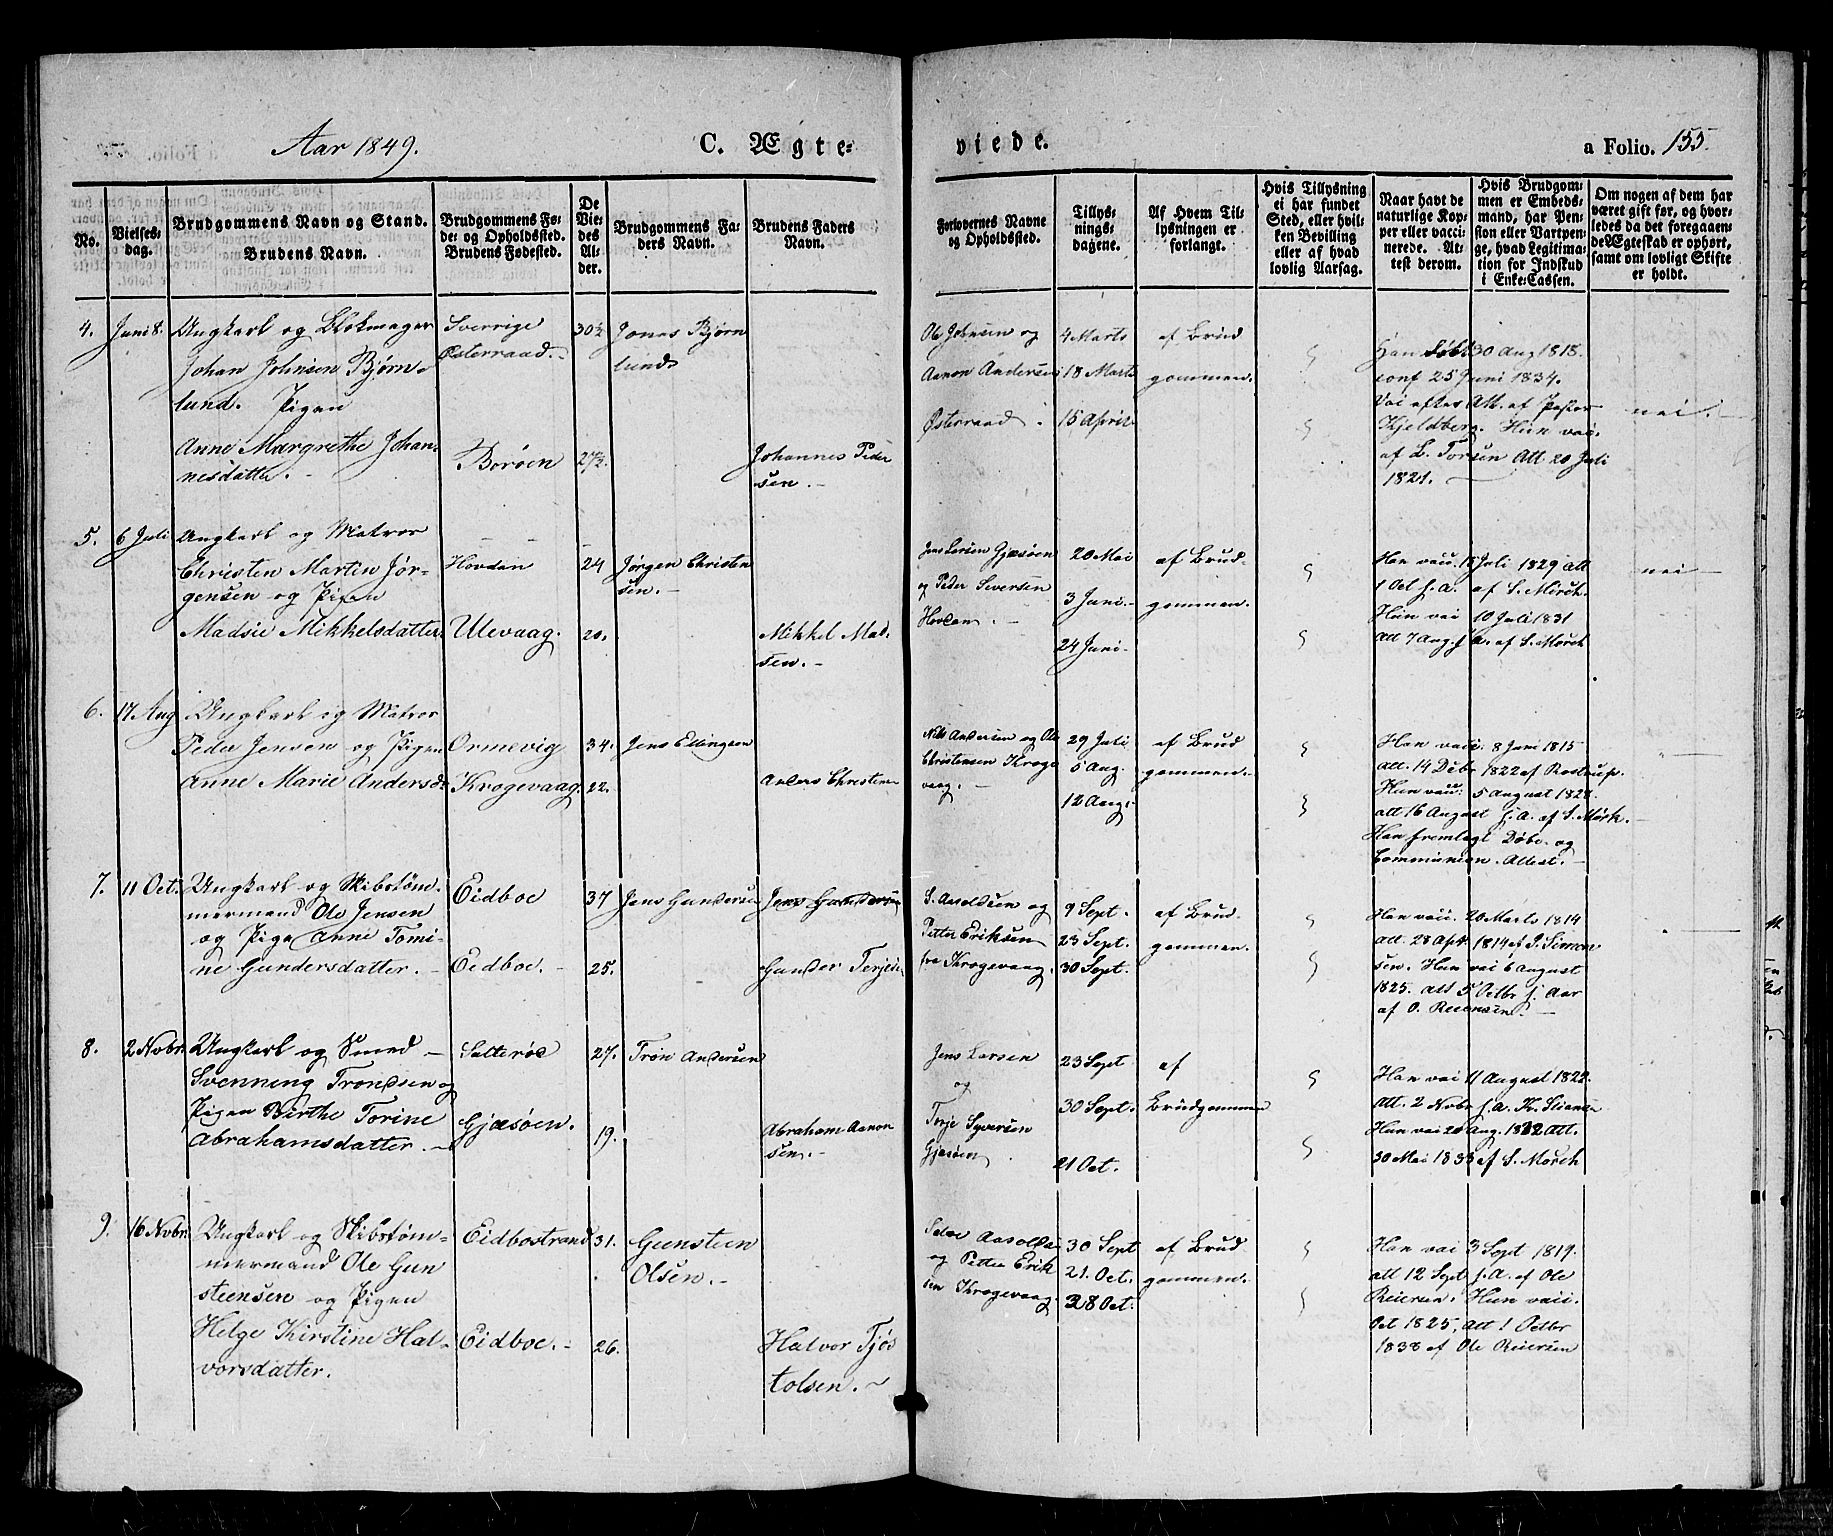 Aar 1849.
C. Ægte-
viede.
a Folio. 155.
No.
Vielses-
dag.
Brudgommens Navn og Stand.
Brudens Navn.
Brudgommens Fø-
de- og Opholdssted.
Brudens Fødested.
De
Vie-
des
Al-
der.
Brudgommens Fa-
ders Navn.
Brudens Faders
Navn.
Forlovernes Navne
og Opholdssted.
Tillys-
nings-
dagene.
Af Hvem Til-
lysningen er
forlangt.
Hvis Tillysning
ei har fundet
Sted, eller hvil-
ken Bevilling
eller af hvad
lovlig Aarsag.
Naar havt de
naturlige Kop-
per eller vacci-
nerede. At-
test derom.
Hvis Brudgom-
men er Embeds-
mand, har Pen-
sion eller Vartpen-
ge, hvad Legitima-
tion for Indskud
i Enke-Cassen.
Om nogen af dem har
været gift før, og hvor-
ledes da det foregaaen-
de Ægteskab er ophørt,
samt om lovligt Skifte
er holdt.
4.
Juni 8.
Ungkarl og Blokmager
Johan Johnsen Bjørn-
lund. Pigen
Anne Margrethe Johan-
nesdatter.
Sverrige
Østerraad.
Borøen
30½
27½.
Jonas Bjørn
lund
Johannes Peder
sen.
Ole Johnsen og
Aanon Andersen
Østerraad.
4 Marts
18 Marts
15 April
af Brud
gommen.
Han Føbt 30 Aug 1818.
conf 25 Juni 1834.
Vai efter Att. af Pastor
Kjeldberg. Hun vai.
af L. Torsen Att 20 Juli
1821.
nei.
5.
6 Juli
Ungkarl og Matros
Christen Martin Jør-
gensen og Pigen
Madsie Mikkelsdatter
Hovdan
Ulevaag.
24
20.
Jørgen Christen
sen.
Mikkel Mad-
sen.
Jens Larsen Gjæsøen
og Peder Seversen
20 Mai
3 Juni.
24 Juni.
af Brud-
gommen.
Han vaii. 18 Juli 1829 att
1 Oct s.A. af S. Mörch.
Hun vai 10 Juli 1831
att 7 Aug. s.A. af S. Mörch
nei
6.
17 Aug
Ungkarl og Matros
Peder Jensen og Pigen
Anne Marie Andersd.
Ormevig
Krogevaag.
34.
22.
Jens Ellingsen
Anders Christensen
Nils Andersen og Ole
Christensen Kroge
vaag.
29 Juli
5 Aug.
12 Aug.
af Brud
gommen.
Han vaii. 8 Juni 1815
att. 14 Debr 1822 af Rostrup.
Hun vaii: 5 August 1828.
att 16 August s.A. af S. Mörk.
Han fremlagt Døbe- og
Communion. Attest.
7.
11 Oct.
Ungkarl og Skibstøm-
mermand Ole Jensen
og Pige Anne Tomi-
ne Gundersdatter.
Eidboe
Eidboe.
37
25.
Jens Gundersen
Jens Gundersen
Gunder Terjesen
S. Aasoldsen og
Petter Eriksen
fra Krogevaag.
9 Sept.
23 Sept.
30 Sept.
af Brud-
gommen.
Han vaii. 20 Marts 1814
att. 28 Apr. 1814 af J. Simon
sen. Hun vai 6 August
1825. att 5 Octbr s. Aar
af O. Reiersen.
8.
2 Novbr.
Ungkarl og Smed
Svenning Trondsen og
Pigen Birthe Torine
Abrahamsdatter.
Satterøe
Gjæsøen.
27.
19.
Tron Andersen
Abraham Aanon
sen.
Jens Larsen
og
Terje Syversen
Gjæsøen
23 Sept
30 Sept.
21 Oct.
af
Brudgommen
Han vai 11 August 1822.
Att. 2 Nobr s.A.
Hun vai 20 Aug. 1832 Att.
30 Mai 1833 af S. Mörch
9.
16 Novbr.
Ungkarl og Skibstøm-
mermand Ole Gun
steensen og Pigen
Helge Kirstine Hal-
vorsdatter.
Eidbostrand
Eidboe.
31.
26.
Gunsteen
Olsen.
Halvor Tjøs
tolsen.
Peder Aasolds
og Petter Erik
sen Krogevaag
30 Sept
21. Oct.
28 Oct.
af Brud
gommen.
Han vai 3 Sept 1819.
att 12 Sept s.A. af Ole
Reiersen. Hun vaii.
Oct 1825, Att 1 Octbr
1838 af Ole Reiersen